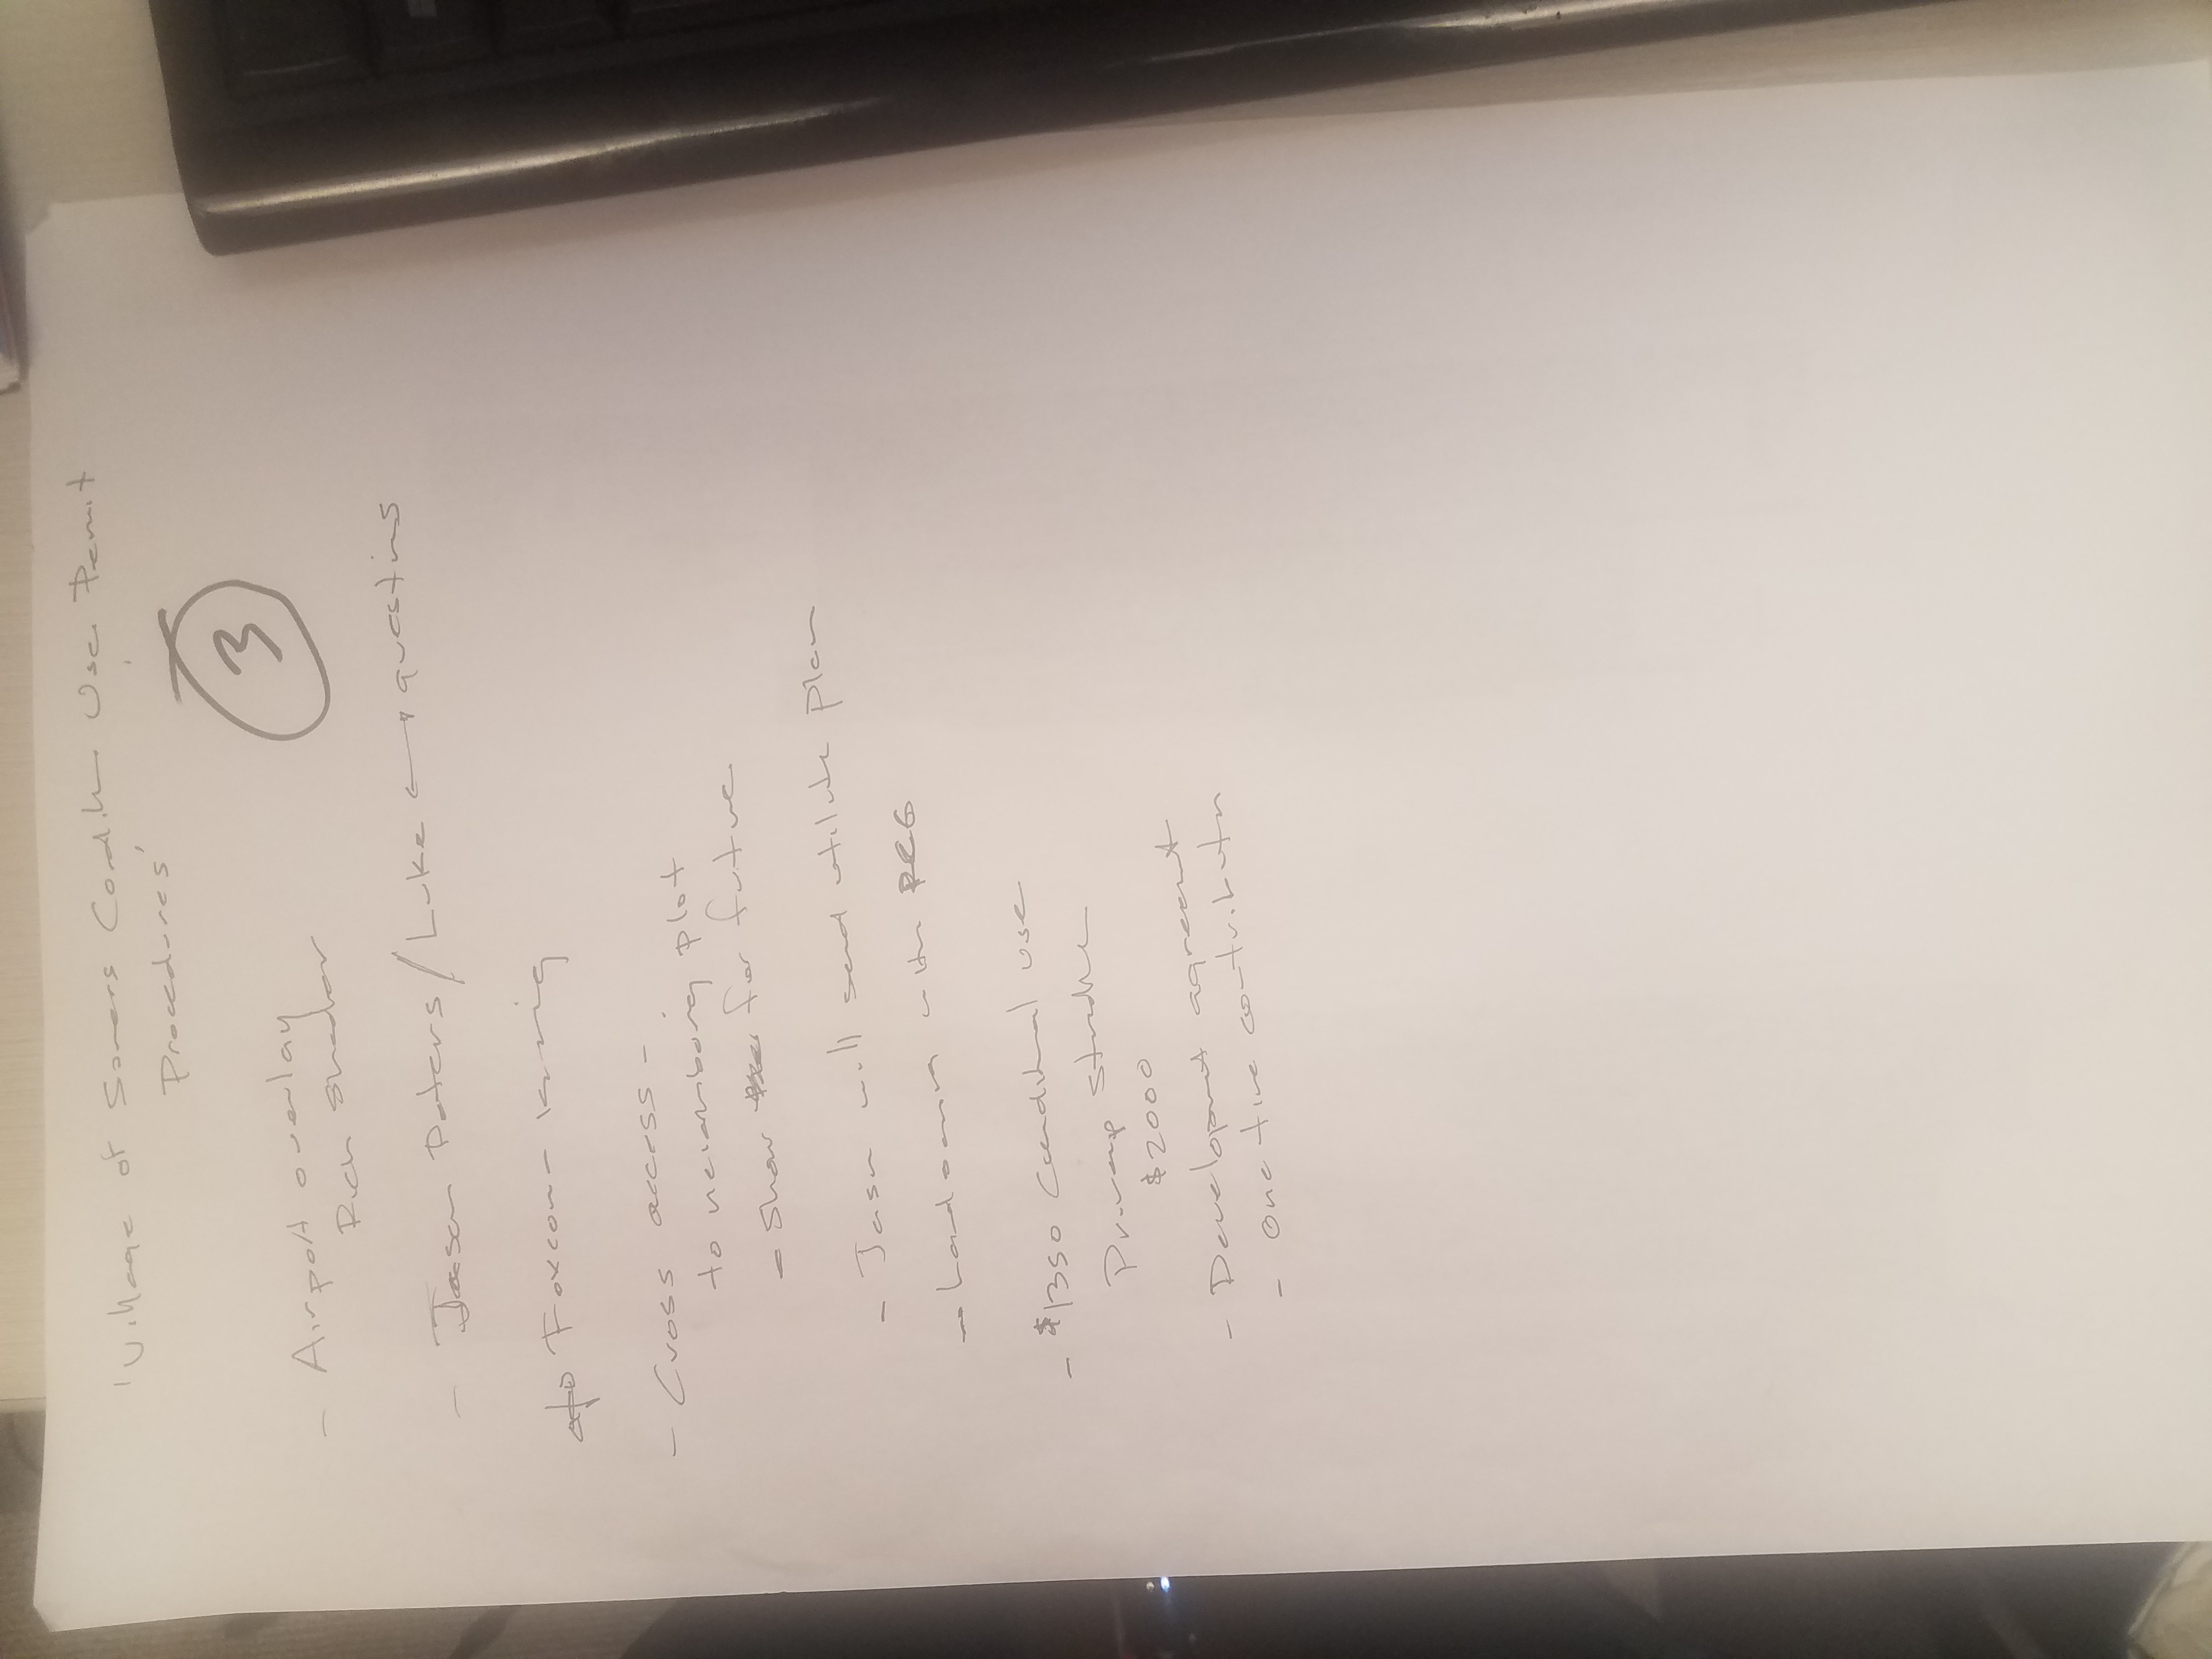 "Village of Somers Condition Use Permit
Procedures"
3
- Airport overlay
- Jason Peters / Luke questions
Foxconn - leaving
- Cross access -
to neighboring plot
- Show for future
- Jason will send utility plan
- Landown with
- $1350 Conditional use
$2000
- Development agreement
- One time contribution